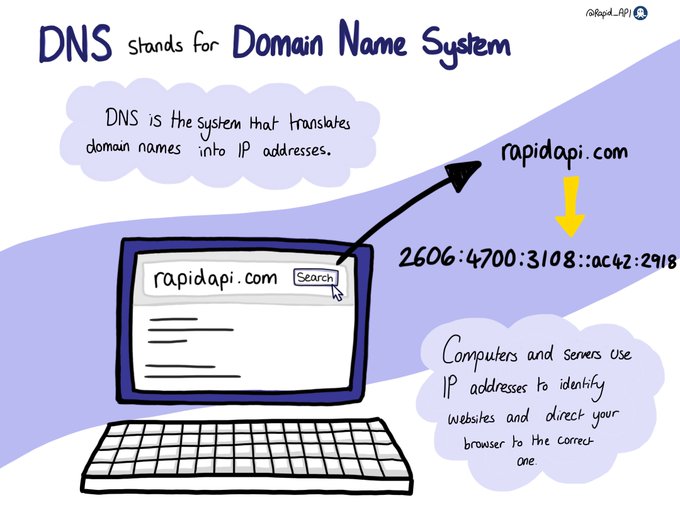 @Rapid_API
DNS stands for Domain Name System
DNS is the system that translates
domain names into IP addresses.
rapidapi.com
2606:4700:3108::ac42:2918
rapidapi.com Search
Computers and servers use
IP addresses to identify
websites and direct your
browser to the correct
one.